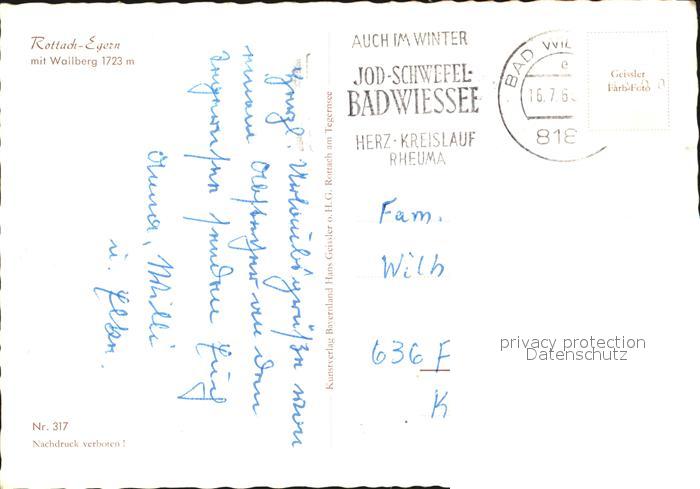 Rottach-Egern
mit Wallberg 1723 m
Herzl. Urlaubsgrüße von
einem Abstecher an den
Tegernsee senden Euch
Anna, Willi
u. Elke.
Nr. 317
Nachdruck verboten!
Kunstverlag Bayernland Hans Geissler o. H.G. Rottach am Tegernsee
AUCH IM WINTER
JOD-SCHWEFEL-
BAD WIESSEE
HERZ-KREISLAUF
RHEUMA
BAD WIE
e
16.7.6
818
Geissler
Farb-Foto
Fam.
Wilh
636 F
K
privacy protection
Datenschutz